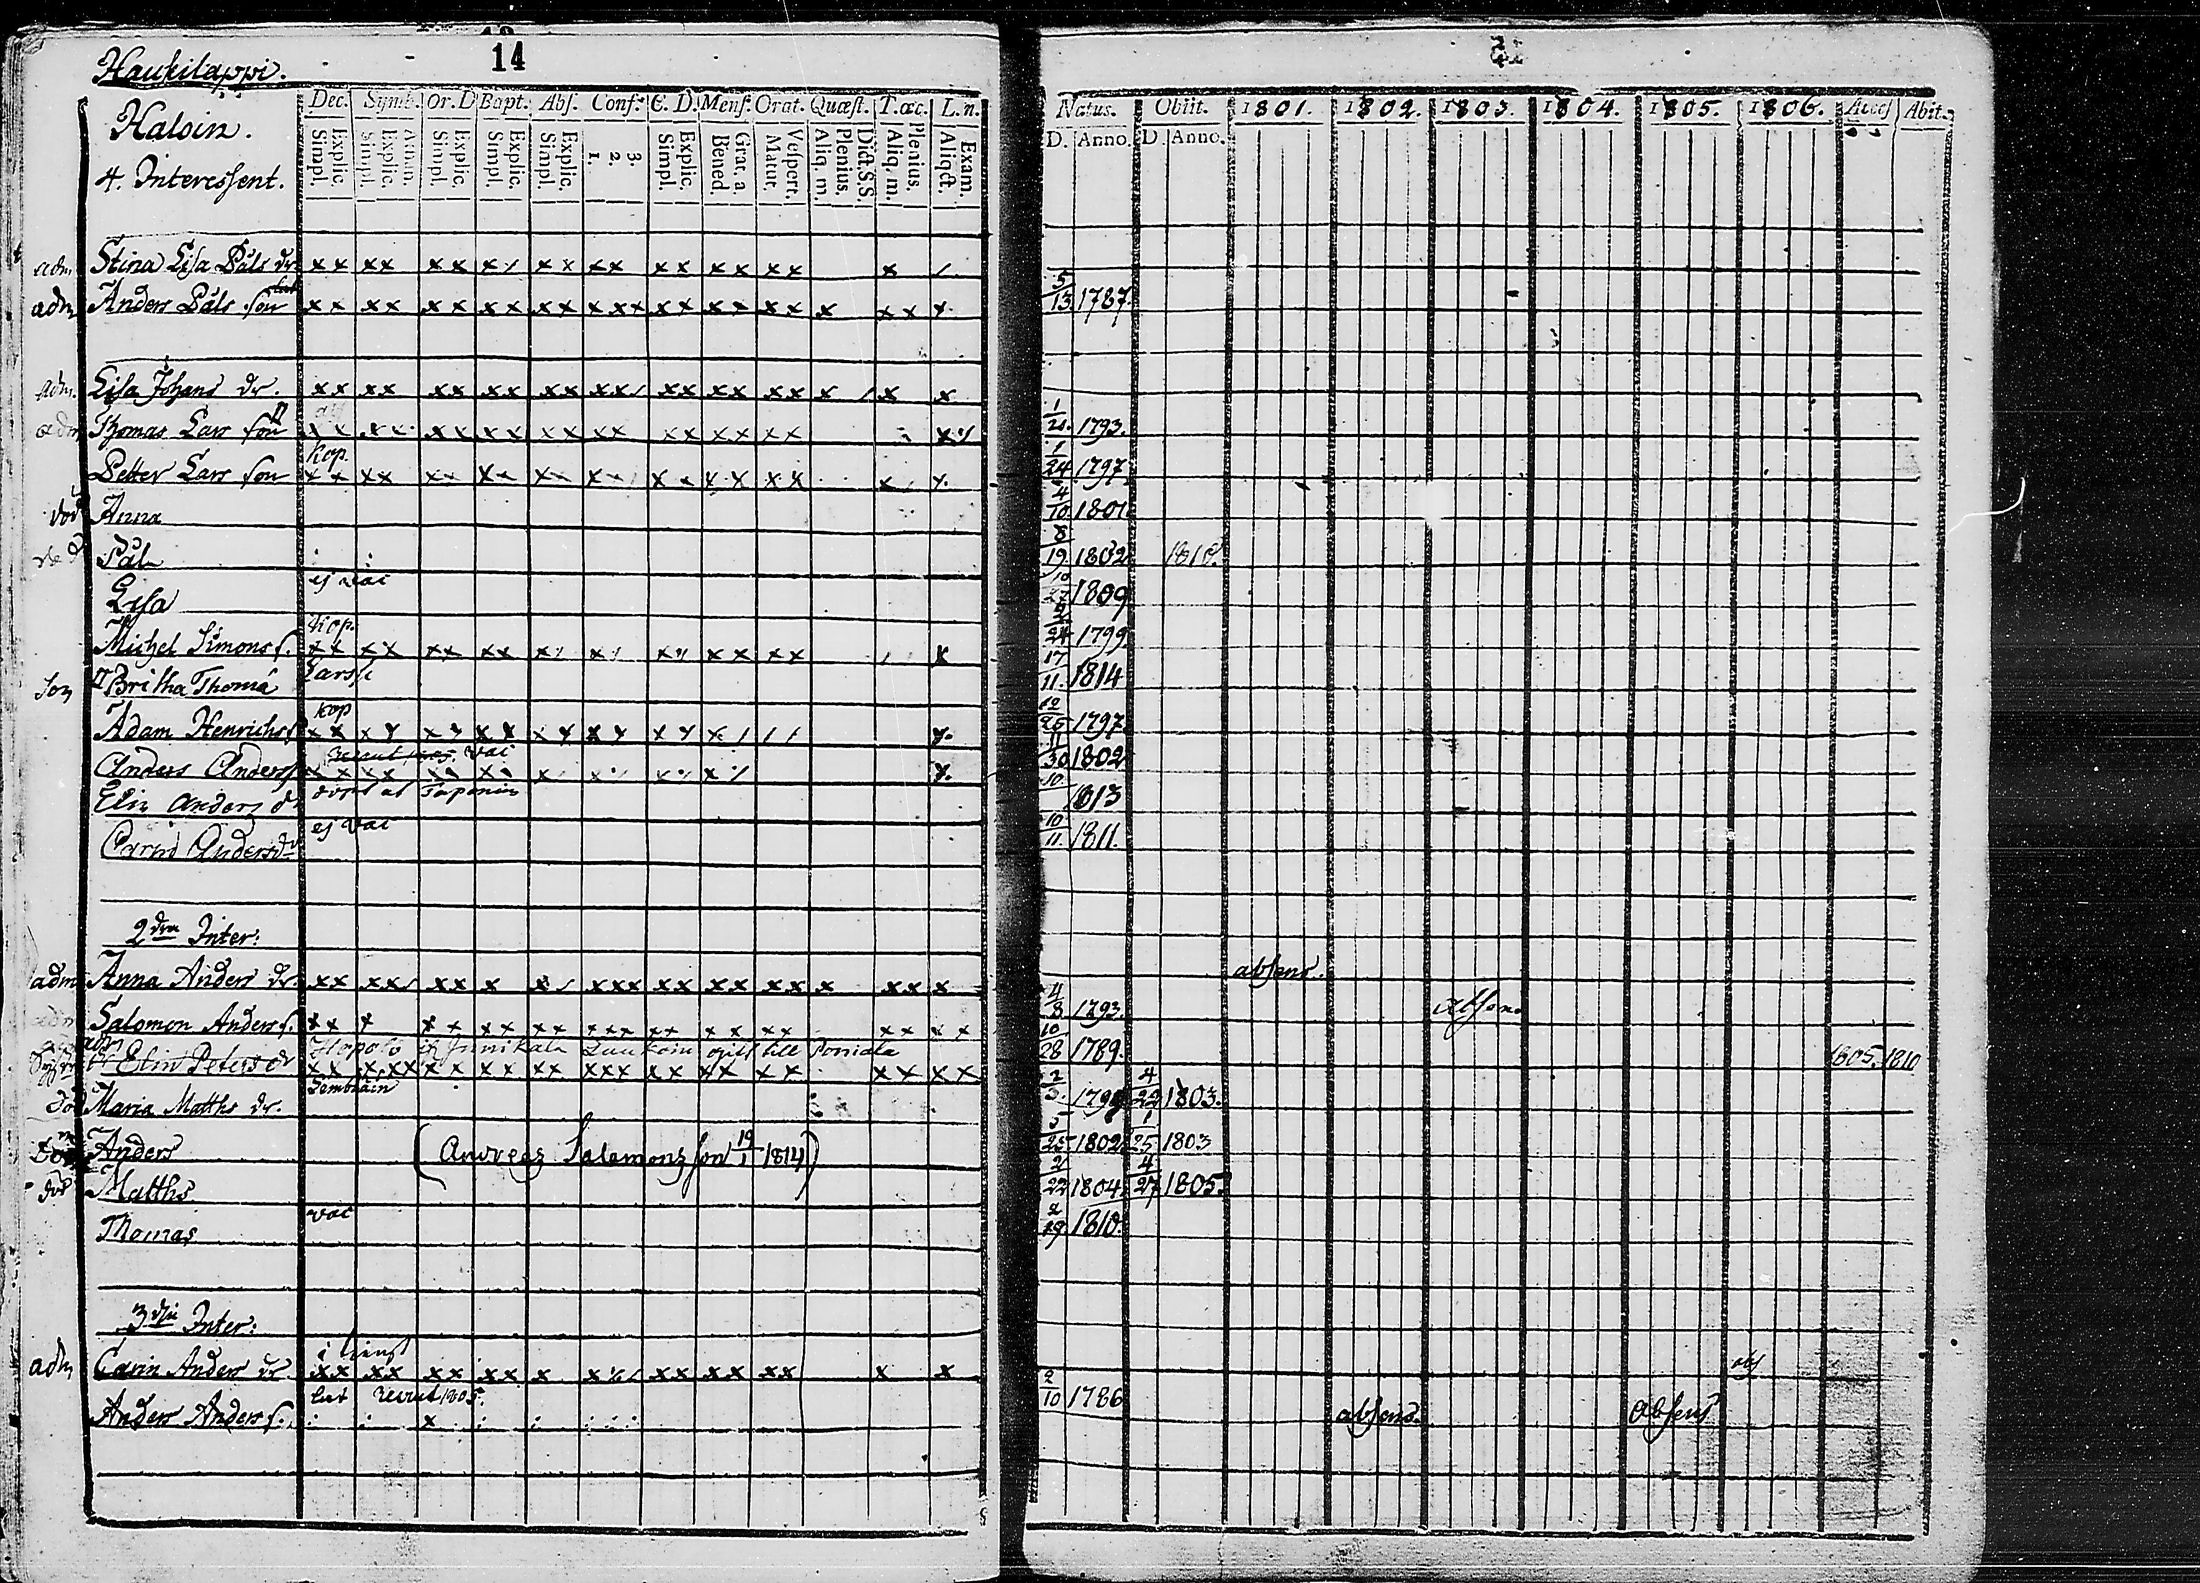 14
Haukilappi.
Haloin.
4. Interessent.
Dec. Symb. Or. D Bapt. Abs. Conf. C. D. Mens. Orat. Quæst. T. œc. L. n.
Simpl. Explic. Simpl. Explic. Athan. Simpl. Explic. Simpl. Explic. Simpl. Explic. 1. 2. 3. Simpl. Explic. Bened. Grat. a. Matut. Vespert. Aliq. m. Plenius. Dict. S.S. Aliq. m. Plenius. Aliqct. Exam.
Natus. Obiit. 1801. 1802. 1803. 1804. 1805. 1806. Access Abit.
D. Anno. D Anno.
adm Stina Lisa Påls dr
adm Anders Påls son 5/13. 1787.
adm. Lisa Johans dr.
adm Thomas Lars son 1793.
kop.
Petter Lars son 1/24 1797
död Anna 4/10 1801
Pål 8/19. 1802 1810.
ej vac
Lisa 10/27 1809
kop.
Michel Simons s. 2/24 1799
Larss
son Britha Thoma 17/11. 1814
kop
Adam Henrichs s 12/25 1797
vac
Anders Anders 11/30 1802
Elin Anders dr 1813
ej vac
Carin Anders dr 10/11. 1811.
2dra Inter:
adm Anna Anders dr. absens.
adm Salomon Anders s. 4/8 1793. absens
till Poniala
Elin Peters dr 10/28 1789. 1805. 1810
Död Maria Matths dr. 2/3. 4/22 1803.
Anders (Andreas Salomons son 19/1 1814) 5/25 1802 1/25 1803
död Matths 2/22 1804. 4/27 1805.
vac
Thomas 2/19. 1810.
3die Inter:
adm Carin Anders dr. abs
recrut 1805.
Anders Anders s. 2/10 1786 absens. Absens